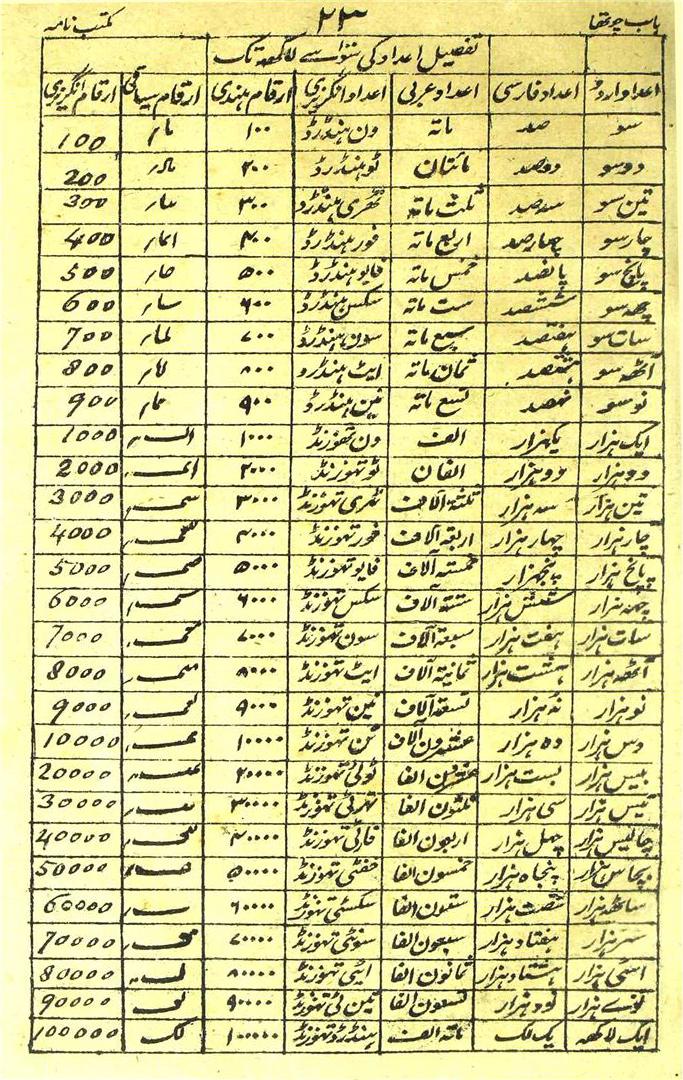 باب چوتھا ۲۳ مکتب نامہ
تفصیل اعداد کی سو سے لاکھ تک
اعداد اردو اعداد فارسی اعداد عربی اعداد انگریزی ارقام ہندی ارقام سیاقی ارقام انگریزی
سو صد ماتہ ون ہنڈرڈ ۱۰۰ 100
دو سو دوصد مائتان ٹو ہنڈرڈ ۲۰۰ 200
تین سو سہ صد ثلث ماتہ تھری ہنڈرڈ ۳۰۰ 300
چار سو چہار صد اربع ماتہ فور ہنڈرڈ ۴۰۰ 400
پانچ سو پانصد خمس ماتہ فایو ہنڈرڈ ۵۰۰ 500
چھ سو ششصد ست ماتہ سکس ہنڈرڈ ۶۰۰ 600
سات سو ہفتصد سبع ماتہ سون ہنڈرڈ ۷۰۰ 700
آٹھ سو ہشتصد ثمان ماتہ ایٹ ہنڈرڈ ۸۰۰ 800
نو سو نہصد تسع ماتہ نین ہنڈرڈ ۹۰۰ 900
ایک ہزار یکہزار الف ون تھوزنڈ ۱۰۰۰ 1000
دو ہزار دو ہزار الفان ٹو تھوزنڈ ۲۰۰۰ 2000
تین ہزار سہ ہزار ثلثۃ آلاف تھری تھوزنڈ ۳۰۰۰ 3000
چار ہزار چہار ہزار اربعۃ آلاف فور تھوزنڈ ۴۰۰۰ 4000
پانچ ہزار پنجہزار خمستہ آلاف فایو تھوزنڈ ۵۰۰۰ 5000
چھ ہزار شش ہزار ستتہ آلاف سکس تھوزنڈ ۶۰۰۰ 6000
سات ہزار ہفت ہزار سبعۃ آلاف سون تھوزنڈ ۷۰۰۰ 7000
آٹھ ہزار ہشت ہزار ثمانیۃ آلاف ایٹ تھوزنڈ ۸۰۰۰ 8000
نو ہزار نہ ہزار تسعۃ آلاف نین تھوزنڈ ۹۰۰۰ 9000
دس ہزار دہ ہزار آلاف ٹن تھوزنڈ ۱۰۰۰۰ 10000
بیس ہزار بست ہزار عشرون الفا ٹونٹی تھوزنڈ ۲۰۰۰۰ 20000
تیس ہزار سی ہزار ثلثون الفا تھرٹی تھوزنڈ ۳۰۰۰۰ 30000
چالیس ہزار چہل ہزار اربعون الفا فارٹی تھوزنڈ ۴۰۰۰۰ 40000
پچاس ہزار پنجاہ ہزار خمسون الفا ففٹی تھوزنڈ ۵۰۰۰۰ 50000
ساٹھ ہزار شصت ہزار ستون الفا سکسٹی تھوزنڈ ۶۰۰۰۰ 60000
ستر ہزار ہفتاد ہزار سبعون الفا سونٹی تھوزنڈ ۷۰۰۰۰ 70000
اسی ہزار ہشتاد ہزار ثمانون الفا ایٹی تھوزنڈ ۸۰۰۰۰ 80000
نوے ہزار نود ہزار تسعون الفا نین ٹی تھوزنڈ ۹۰۰۰۰ 90000
ایک لاکھ یک لک ماتہ الف ہنڈرڈ تھوزنڈ ۱۰۰۰۰۰ لک 100000